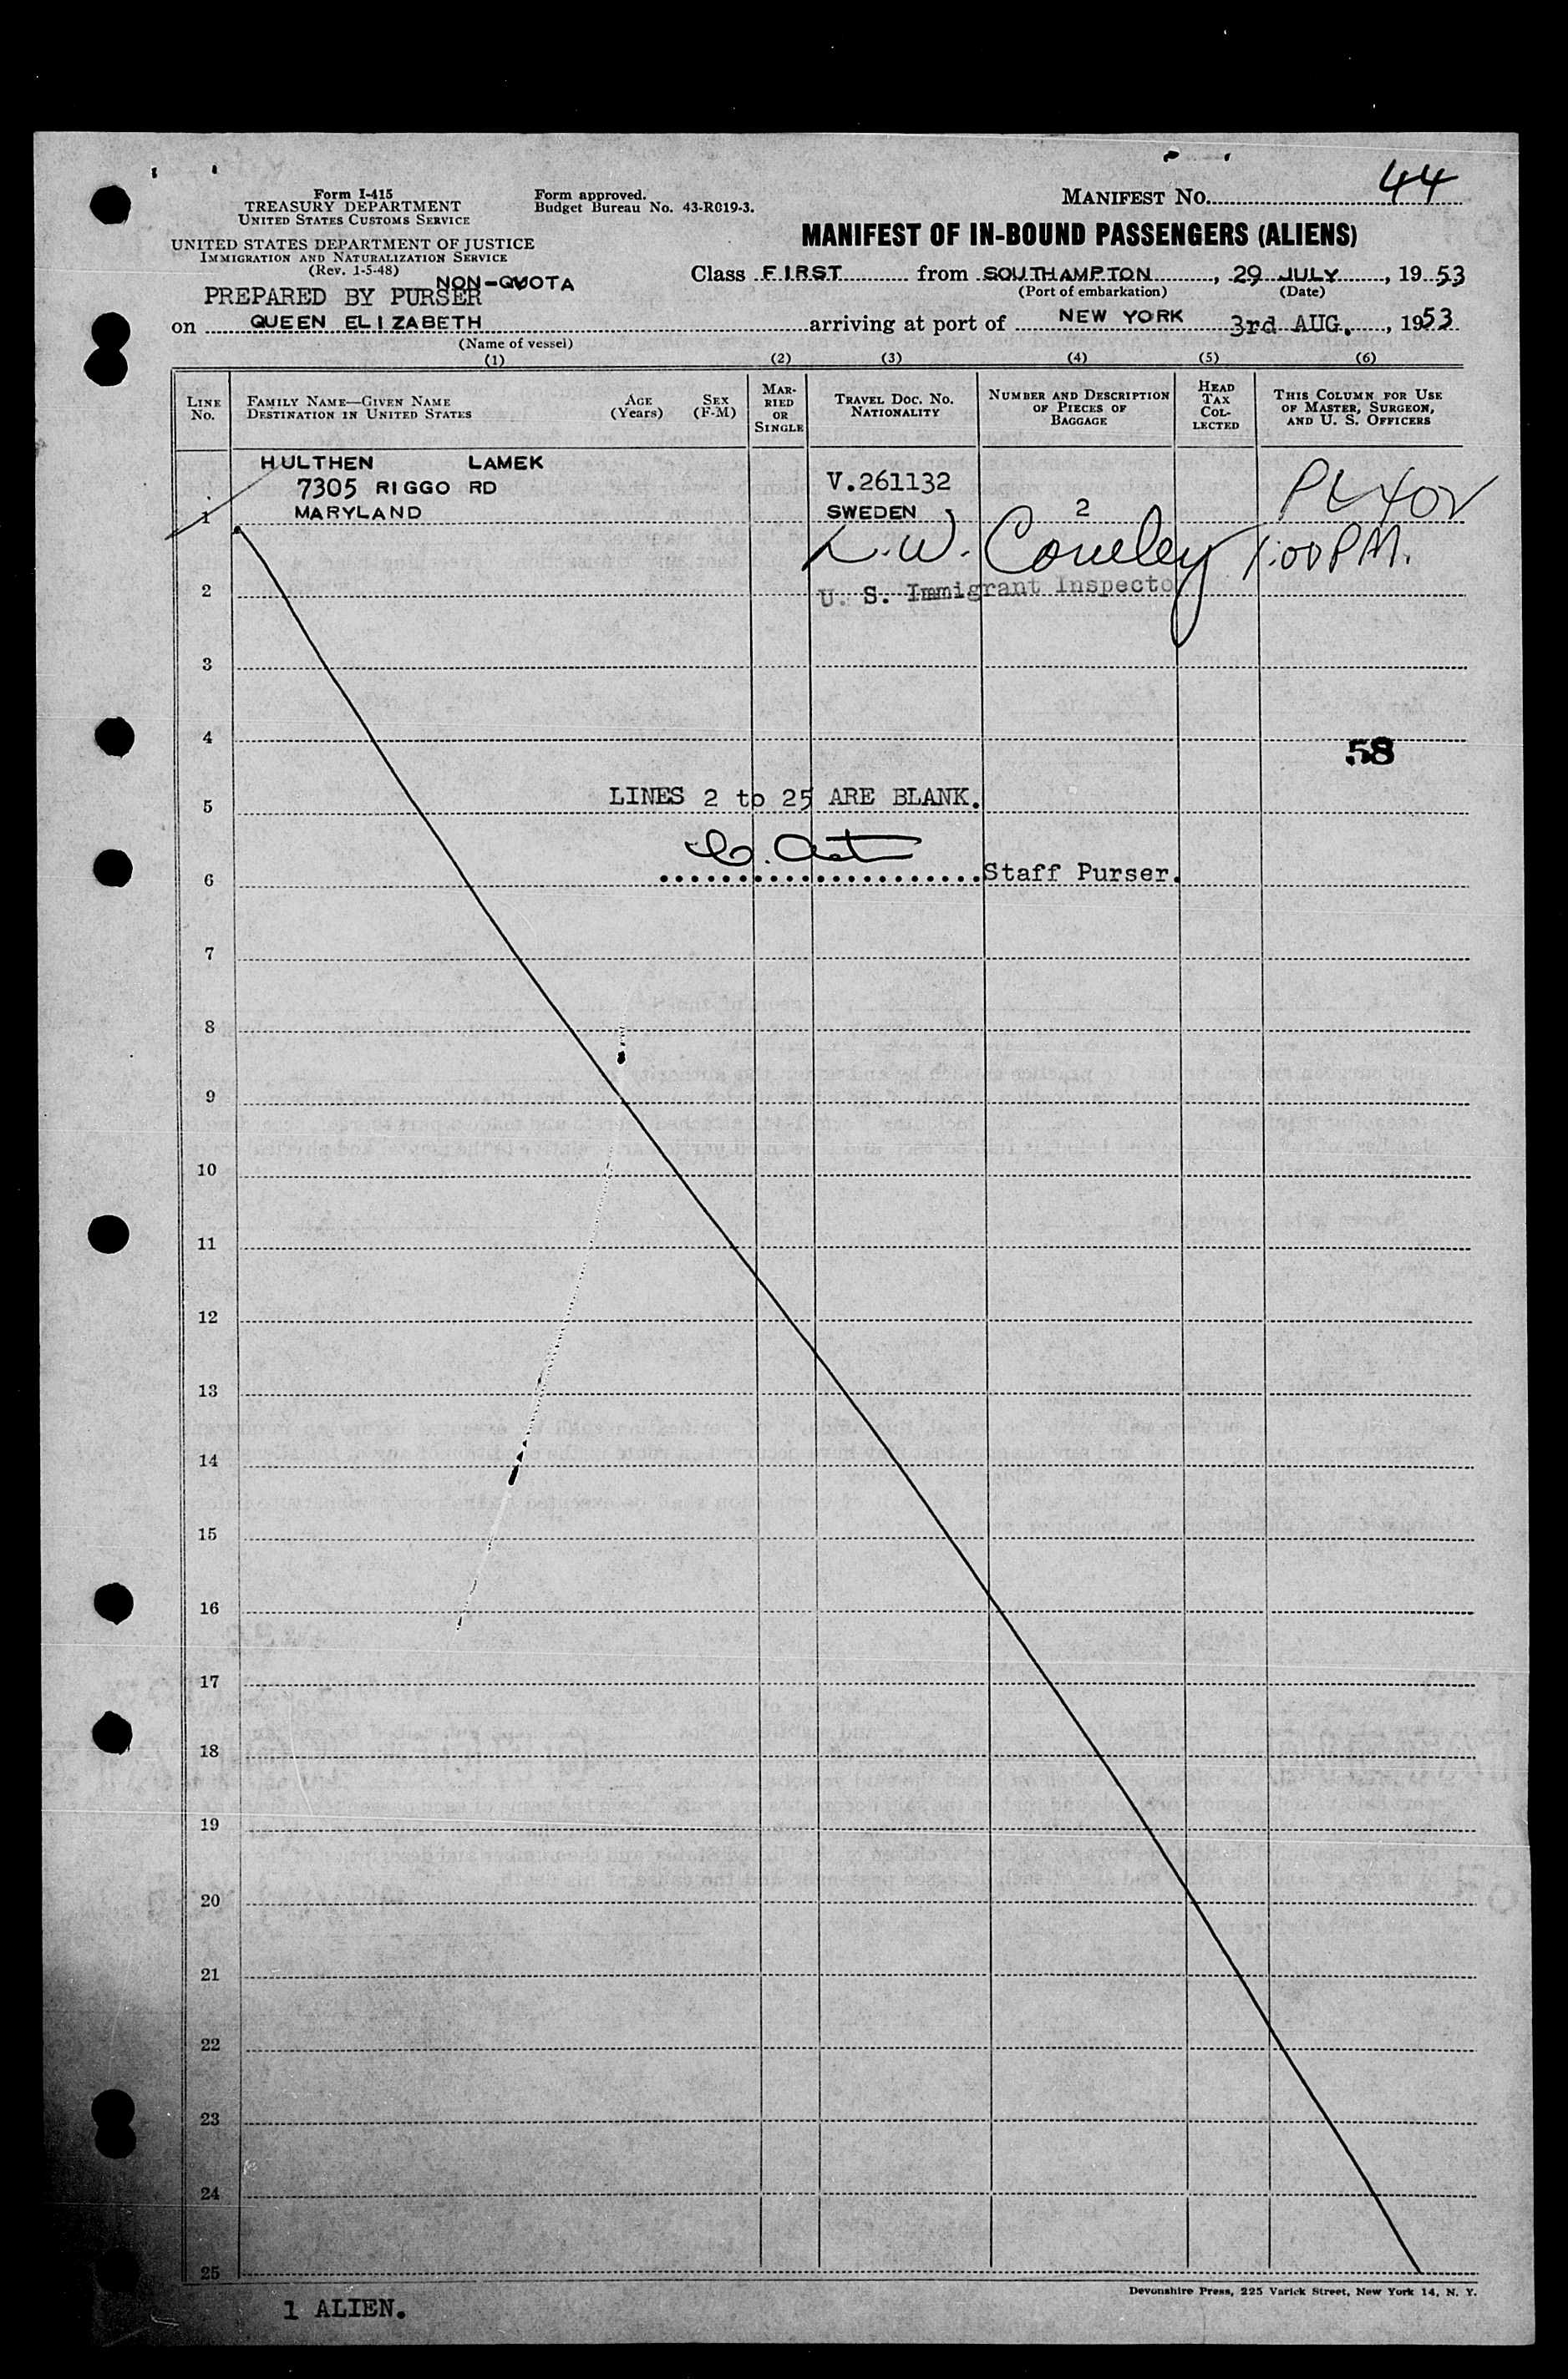 44
Form I-415
TREASURY DEPARTMENT
UNITED STATES CUSTOMS SERVICE
Form approved.
Budget Bureau No. 43-R019-3.
MANIFEST NO.
UNITED STATES DEPARTMENT OF JUSTICE
IMMIGRATION AND NATURALIZATION SERVICE
(Rev. 1-5-48)
MANIFEST OF IN-BOUND PASSENGERS (ALIENS)
NON-QUOTA
PREPARED BY PURSER
Class FIRST from SOUTHAMPTON, 29 JULY, 1953
(Port of embarkation) (Date)
on QUEEN ELIZABETH arriving at port of NEW YORK 3rd AUG., 1953
(Name of vessel)
(1) (2) (3) (4) (5) (6)
LINE No.
FAMILY NAME—GIVEN NAME
DESTINATION IN UNITED STATES
AGE (Years)
SEX (F-M)
MARRIED OR SINGLE
TRAVEL DOC. NO.
NATIONALITY
NUMBER AND DESCRIPTION OF PIECES OF BAGGAGE
HEAD TAX COLLECTED
THIS COLUMN FOR USE OF MASTER, SURGEON, AND U. S. OFFICERS
HULTHEN LAMEK
7305 RIGGO RD V.261132
1 MARYLAND SWEDEN 2
1:00 PM.
2 U. S. Immigrant Inspecto
3
4 58
5 LINES 2 to 25 ARE BLANK.
6 Staff Purser.
7
8
9
10
11
12
13
14
15
16
17
18
19
20
21
22
23
24
25
Devonshire Press, 225 Varick Street, New York 14, N. Y.
1 ALIEN.